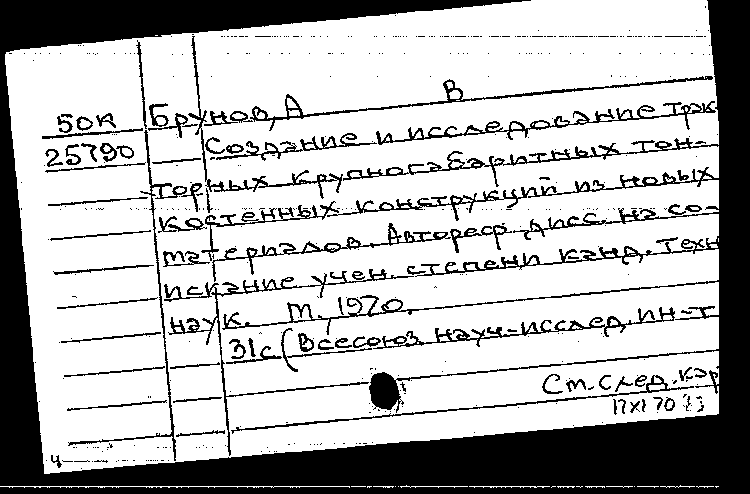 В
50К Брунов, А
25790 Создание и исследование трак-
торных крупногабаритных тон-
костенных конструкций из новых
материалов. Автореф. дисс. на со-
искание учен. степени канд. техн
наук. М., 1970.
31с (Всесоюз. науч.-исслед. ин-т
См. след. кар
17 XI 70
ч